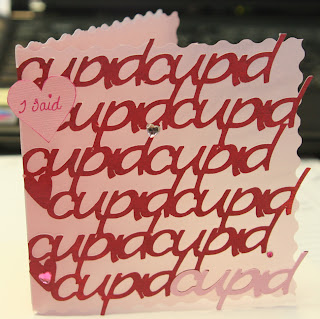 cupidcupid
I Said
cupidcupid
cupidcupid
cupidcupid
cupidcupid
cupidcupid